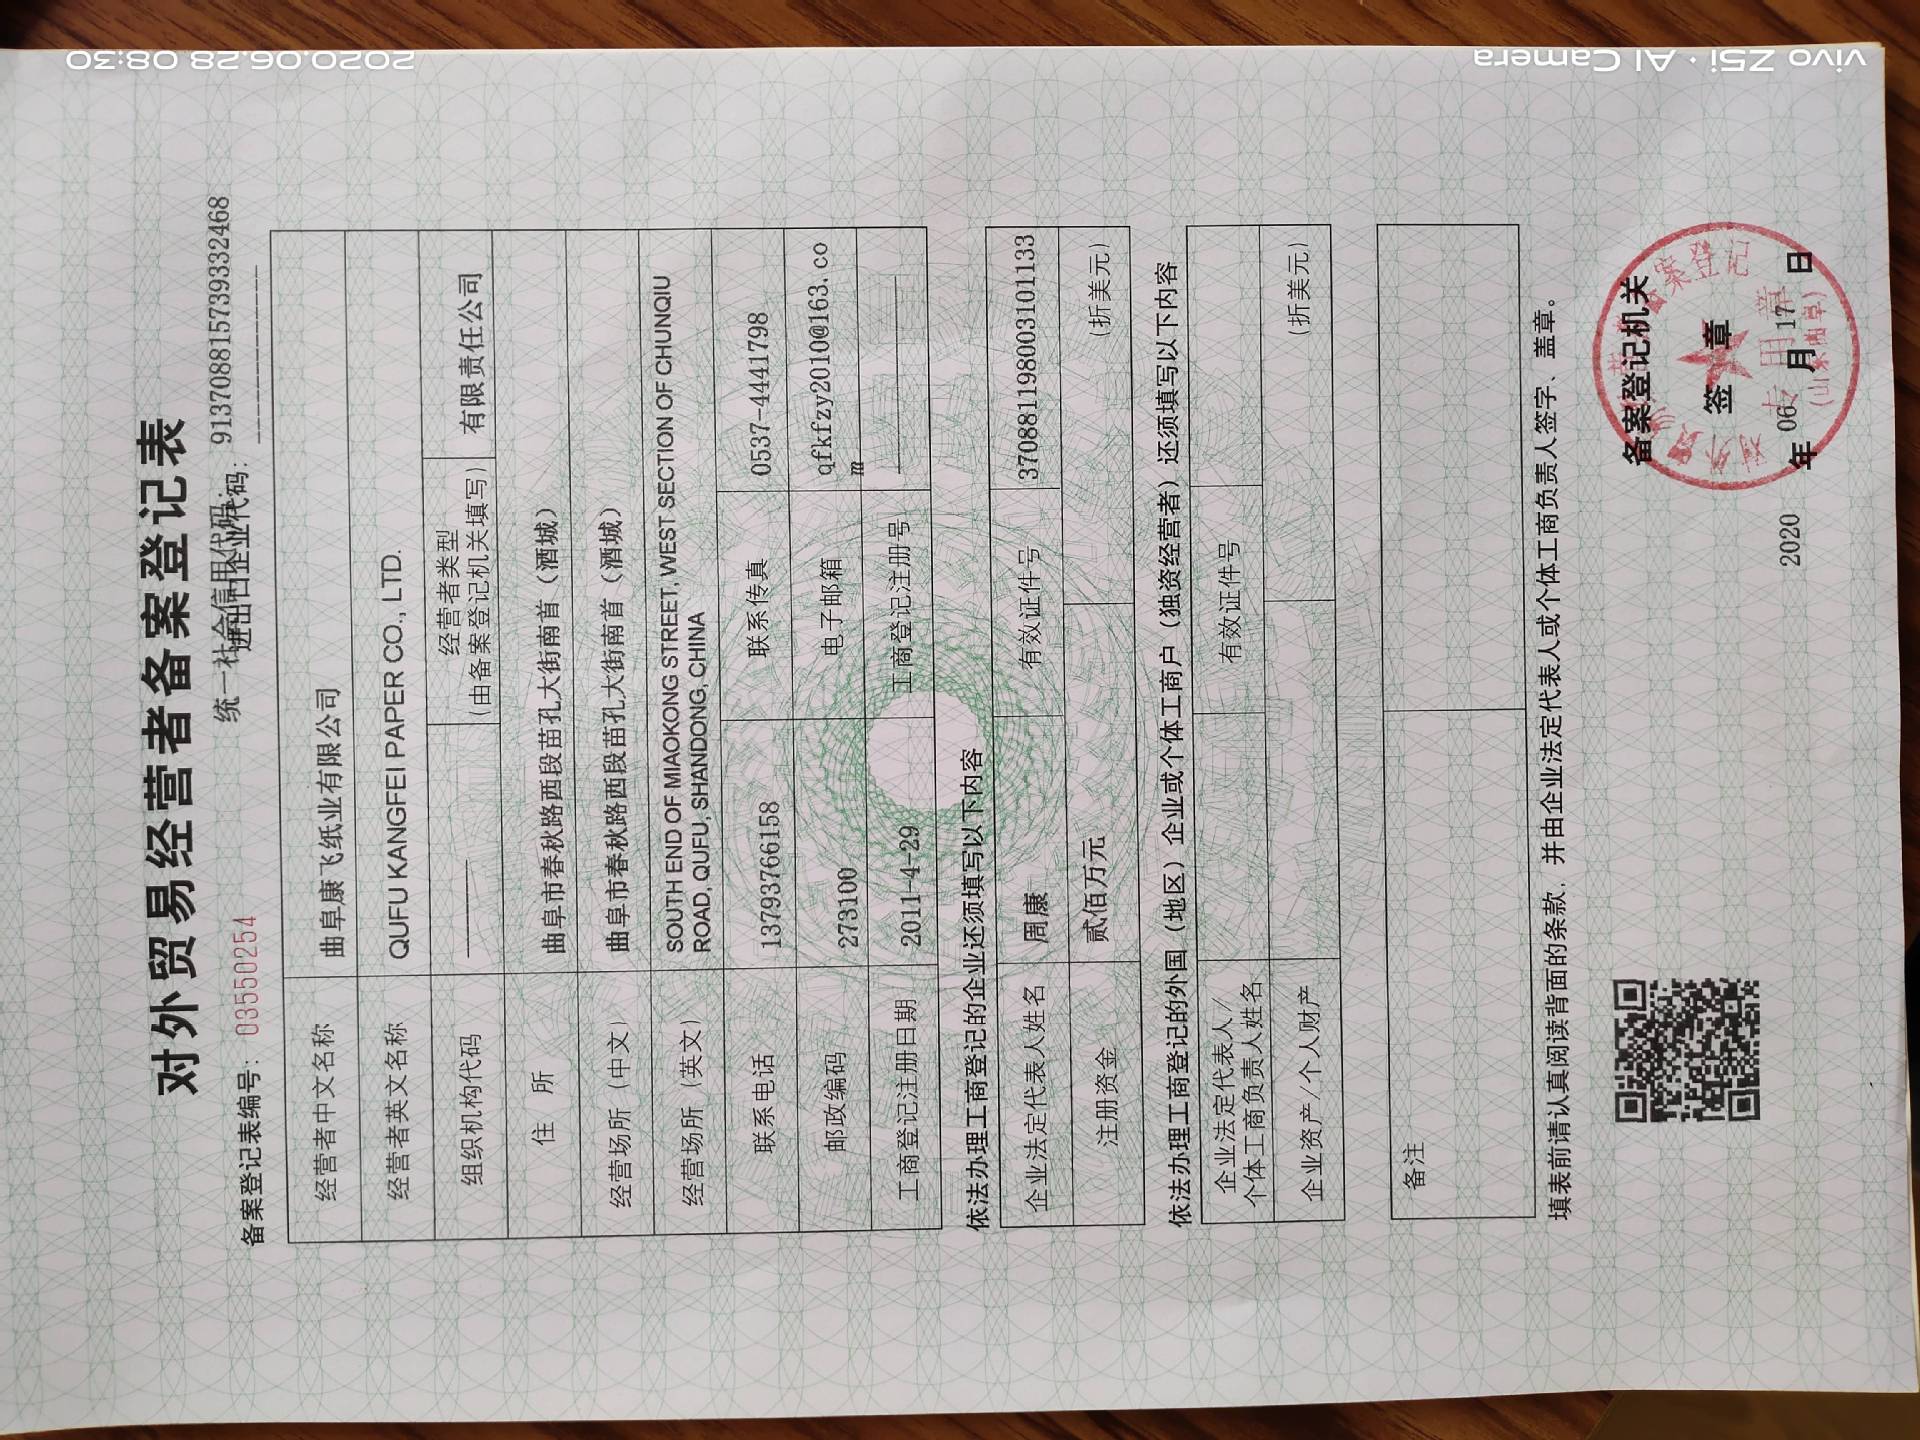 对外贸易经营者备案登记表
统一社会信用代码: 913708815739332468
备案登记表编号: 03550254
进出口企业代码:
经营者中文名称 曲阜康飞纸业有限公司
经营者英文名称 QUFU KANGFEI PAPER CO., LTD.
组织机构代码 经营者类型 有限责任公司
(由备案登记机关填写)
住 所 曲阜市春秋路西段苗孔大街南首(酒城)
经营场所(中文) 曲阜市春秋路西段苗孔大街南首(酒城)
经营场所(英文) SOUTH END OF MIAOKONG STREET, WEST SECTION OF CHUNQIU
ROAD, QUFU, SHANDONG, CHINA
联系电话 13793766158 联系传真 0537-4441798
邮政编码 273100 电子邮箱 qfkfzy2010@163.co
m
工商登记注册日期 2011-4-29 工商登记注册号
依法办理工商登记的企业还须填写以下内容
企业法定代表人姓名 周康 有效证件号 370881198003101133
注册资金 贰佰万元 (折美元)
依法办理工商登记的外国(地区)企业或个体工商户(独资经营者)还须填写以下内容
企业法定代表人/ 有效证件号
个体工商负责人姓名
企业资产/个人财产 (折美元)
备注
填表前请认真阅读背面的条款,并由企业法定代表人或个体工商负责人签字、盖章。
备案登记机关
签 章
2020 年 06 月 17 日
案登记
专用章
vivo Z5i · AI Camera
2020.06.28 08:30